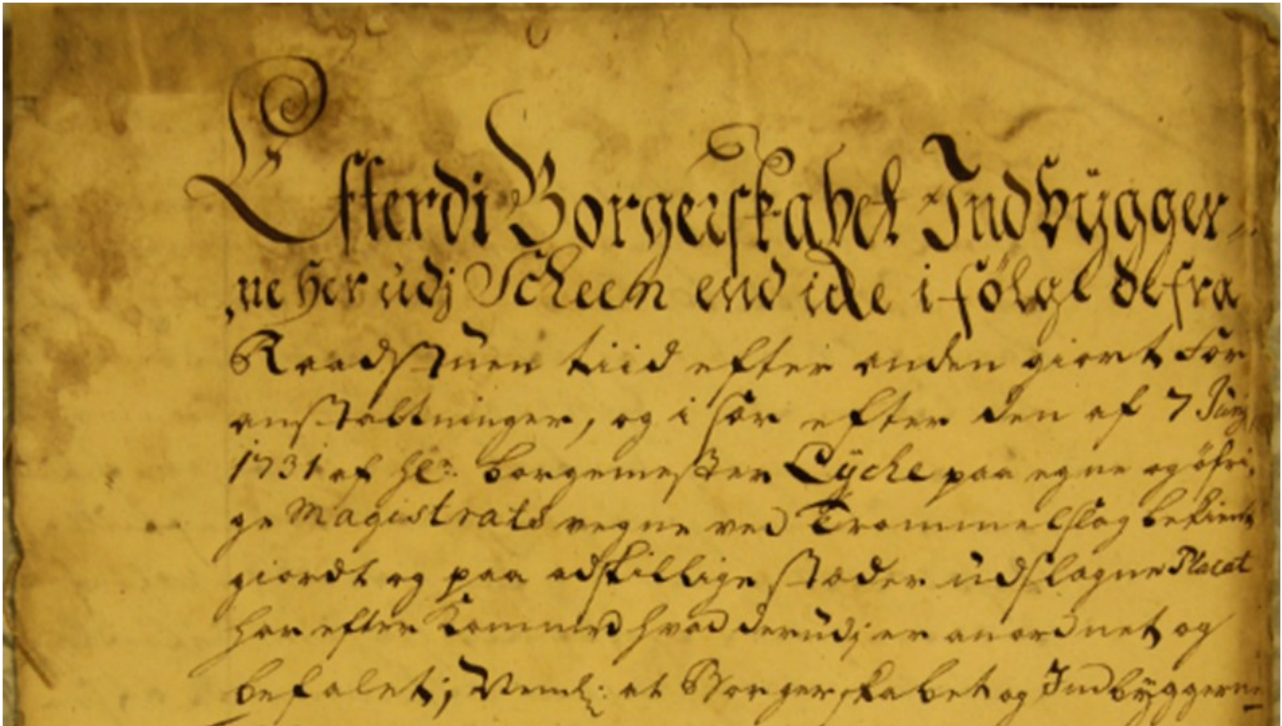 Efterdi Borgerskabet Indbÿgger=
,ne her udj Scheen end icke i følge de fra
Raadstuen tiid efter anden giort For
anstaltninger, og i sær efter den af 7 Junj
1731 af hr: borgemester Lÿche paa egne og øfri,
ge Magistrats vegne ved Trommelslag bekient
giordt og paa adskillige stæder udslagne Placat
har efter kommed hvad derudj er anordnet og
befalet; Neml: at Borgerskabet og Indbÿggerne